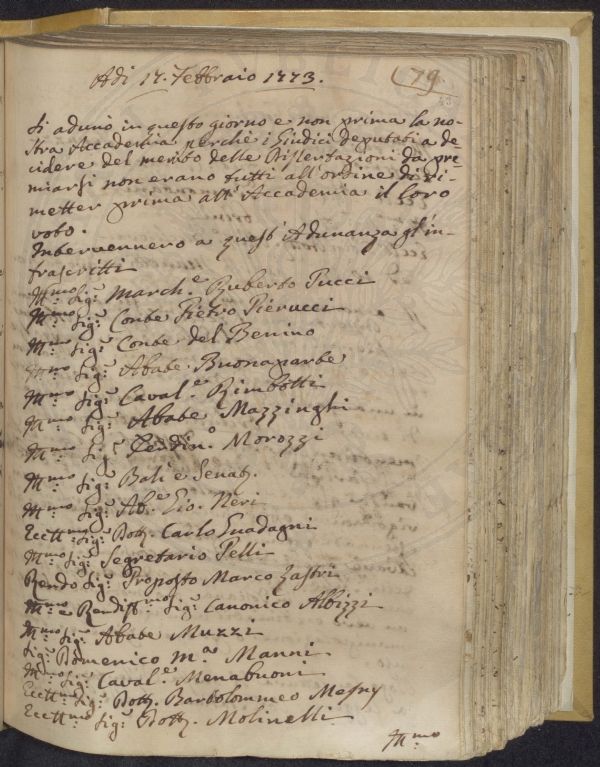 Adi 17. Febbraio 1773.
79.
Si adunò in questo giorno e non prima la no-
stra Accademia perchè i Giudici deputati a de
cidere del merito delle Dissertazioni da pre
miarsi non erano tutti all'ordine di ri-
metter prima all'Accademia il loro
voto.
Intervennero a quest'Adunanza gl'in-
frascritti
Ill.mo Sig.r March.e Ruberto Pucci
Ill.mo Sig.r Conte Pietro Pierucci
Ill.mo Sig.r Conte del Benino
Ill.mo Sig.r Abate Buonaparte
Ill.mo Sig.r Caval.e Rimbotti
Ill.mo Sig.r Abate Mazzinghi
Ill.mo Sig.r Ferdin.o Morozzi
Ill.mo Sig.r Balì e Senat.
Ill.mo Sig.r Ab.e Gio. Neri
Eccll.mo Sig.r Dott. Carlo Guadagni
Ill.mo Sig.r Segretario Pelli
Rendo Sig.r Proposto Marco Lastri
Ill.mo e Rendiss.mo Sig.r Canonico Albizzi
Ill.mo Sig.r Abate Muzzi
Sig.r Domenico M.a Manni
Ill.mo Sig.r Caval.e Menabuoni
Eccll.mo Sig.r Dott. Bartolommeo Mesny
Eccll.mo Sig.r Dott. Molinelli
Ill.mo